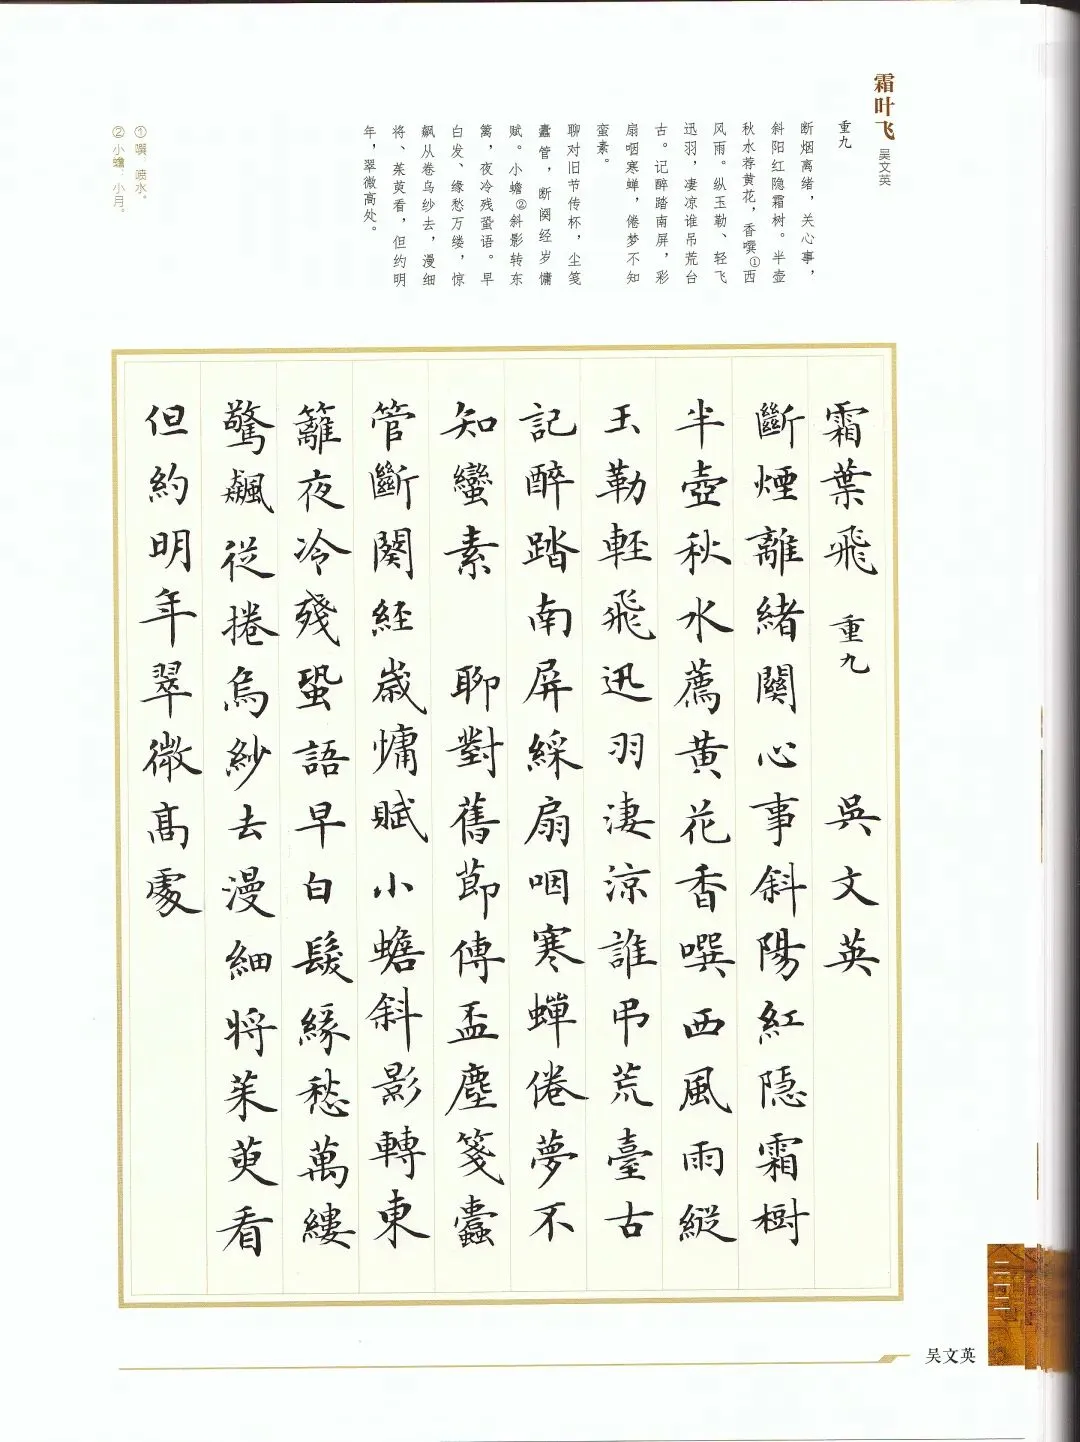 霜叶飞 吴文英
重九
断烟离绪，关心事，
斜阳红隐霜树。半壶
秋水荐黄花，香噀①西
风雨。纵玉勒、轻飞
迅羽，凄凉谁吊荒台
古。记醉踏南屏，彩
扇咽寒蝉，倦梦不知
蛮素。
聊对旧节传杯，尘笺
蠹管，断阕经岁慵
赋。小蟾②斜影转东
篱，夜冷残蛩语。早
白发、缘愁万缕，惊
飙从卷乌纱去，漫细
将、茱萸看，但约明
年，翠微高处。
①噀：喷水。
②小蟾：小月。
霜葉飛 重九 吳文英
斷煙離緒關心事斜陽紅隱霜樹
半壺秋水薦黃花香噀西風雨縱
玉勒輕飛迅羽淒涼誰弔荒臺古
記醉踏南屏綵扇咽寒蟬倦夢不
知蠻素 聊對舊節傳盃塵箋蠹
管斷闋經歲慵賦小蟾斜影轉東
籬夜冷殘蛩語早白髮緣愁萬縷
驚飆從捲烏紗去漫細將茱萸看
但約明年翠微高處
吴文英
二一一